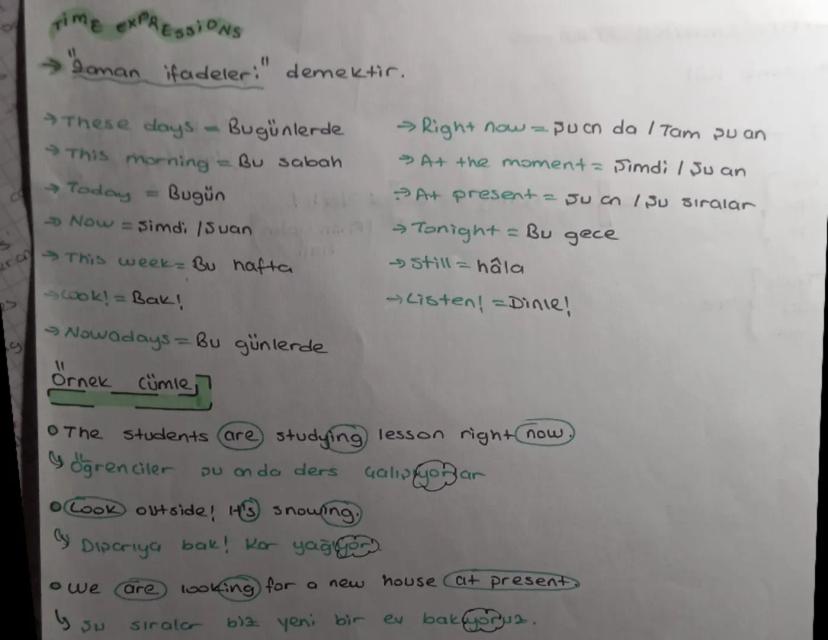 TIME EXPRESSIONS
→ "Zaman ifadeleri" demektir.
→ These days = Bugünlerde
→ This morning = Bu sabah
→ Today = Bugün
→ Now = Şimdi / Şuan
→ This week = Bu hafta
→ Look! = Bak!
→ Nowadays = Bu günlerde
→ Right now = Şuan da / Tam şu an
→ At the moment = Şimdi / Şu an
→ At present = Şu an / Şu sıralar
→ Tonight = Bu gece
→ Still = hâla
→ Listen! = Dinle!
Örnek cümle
The students are studying lesson right now.
↳ Öğrenciler şu anda ders çalışıyorlar
Look outside! It's snowing.
↳ Dışarıya bak! Kar yağıyor.
We are looking for a new house at present.
↳ Şu sıralar biz yeni bir ev bakıyoruz.